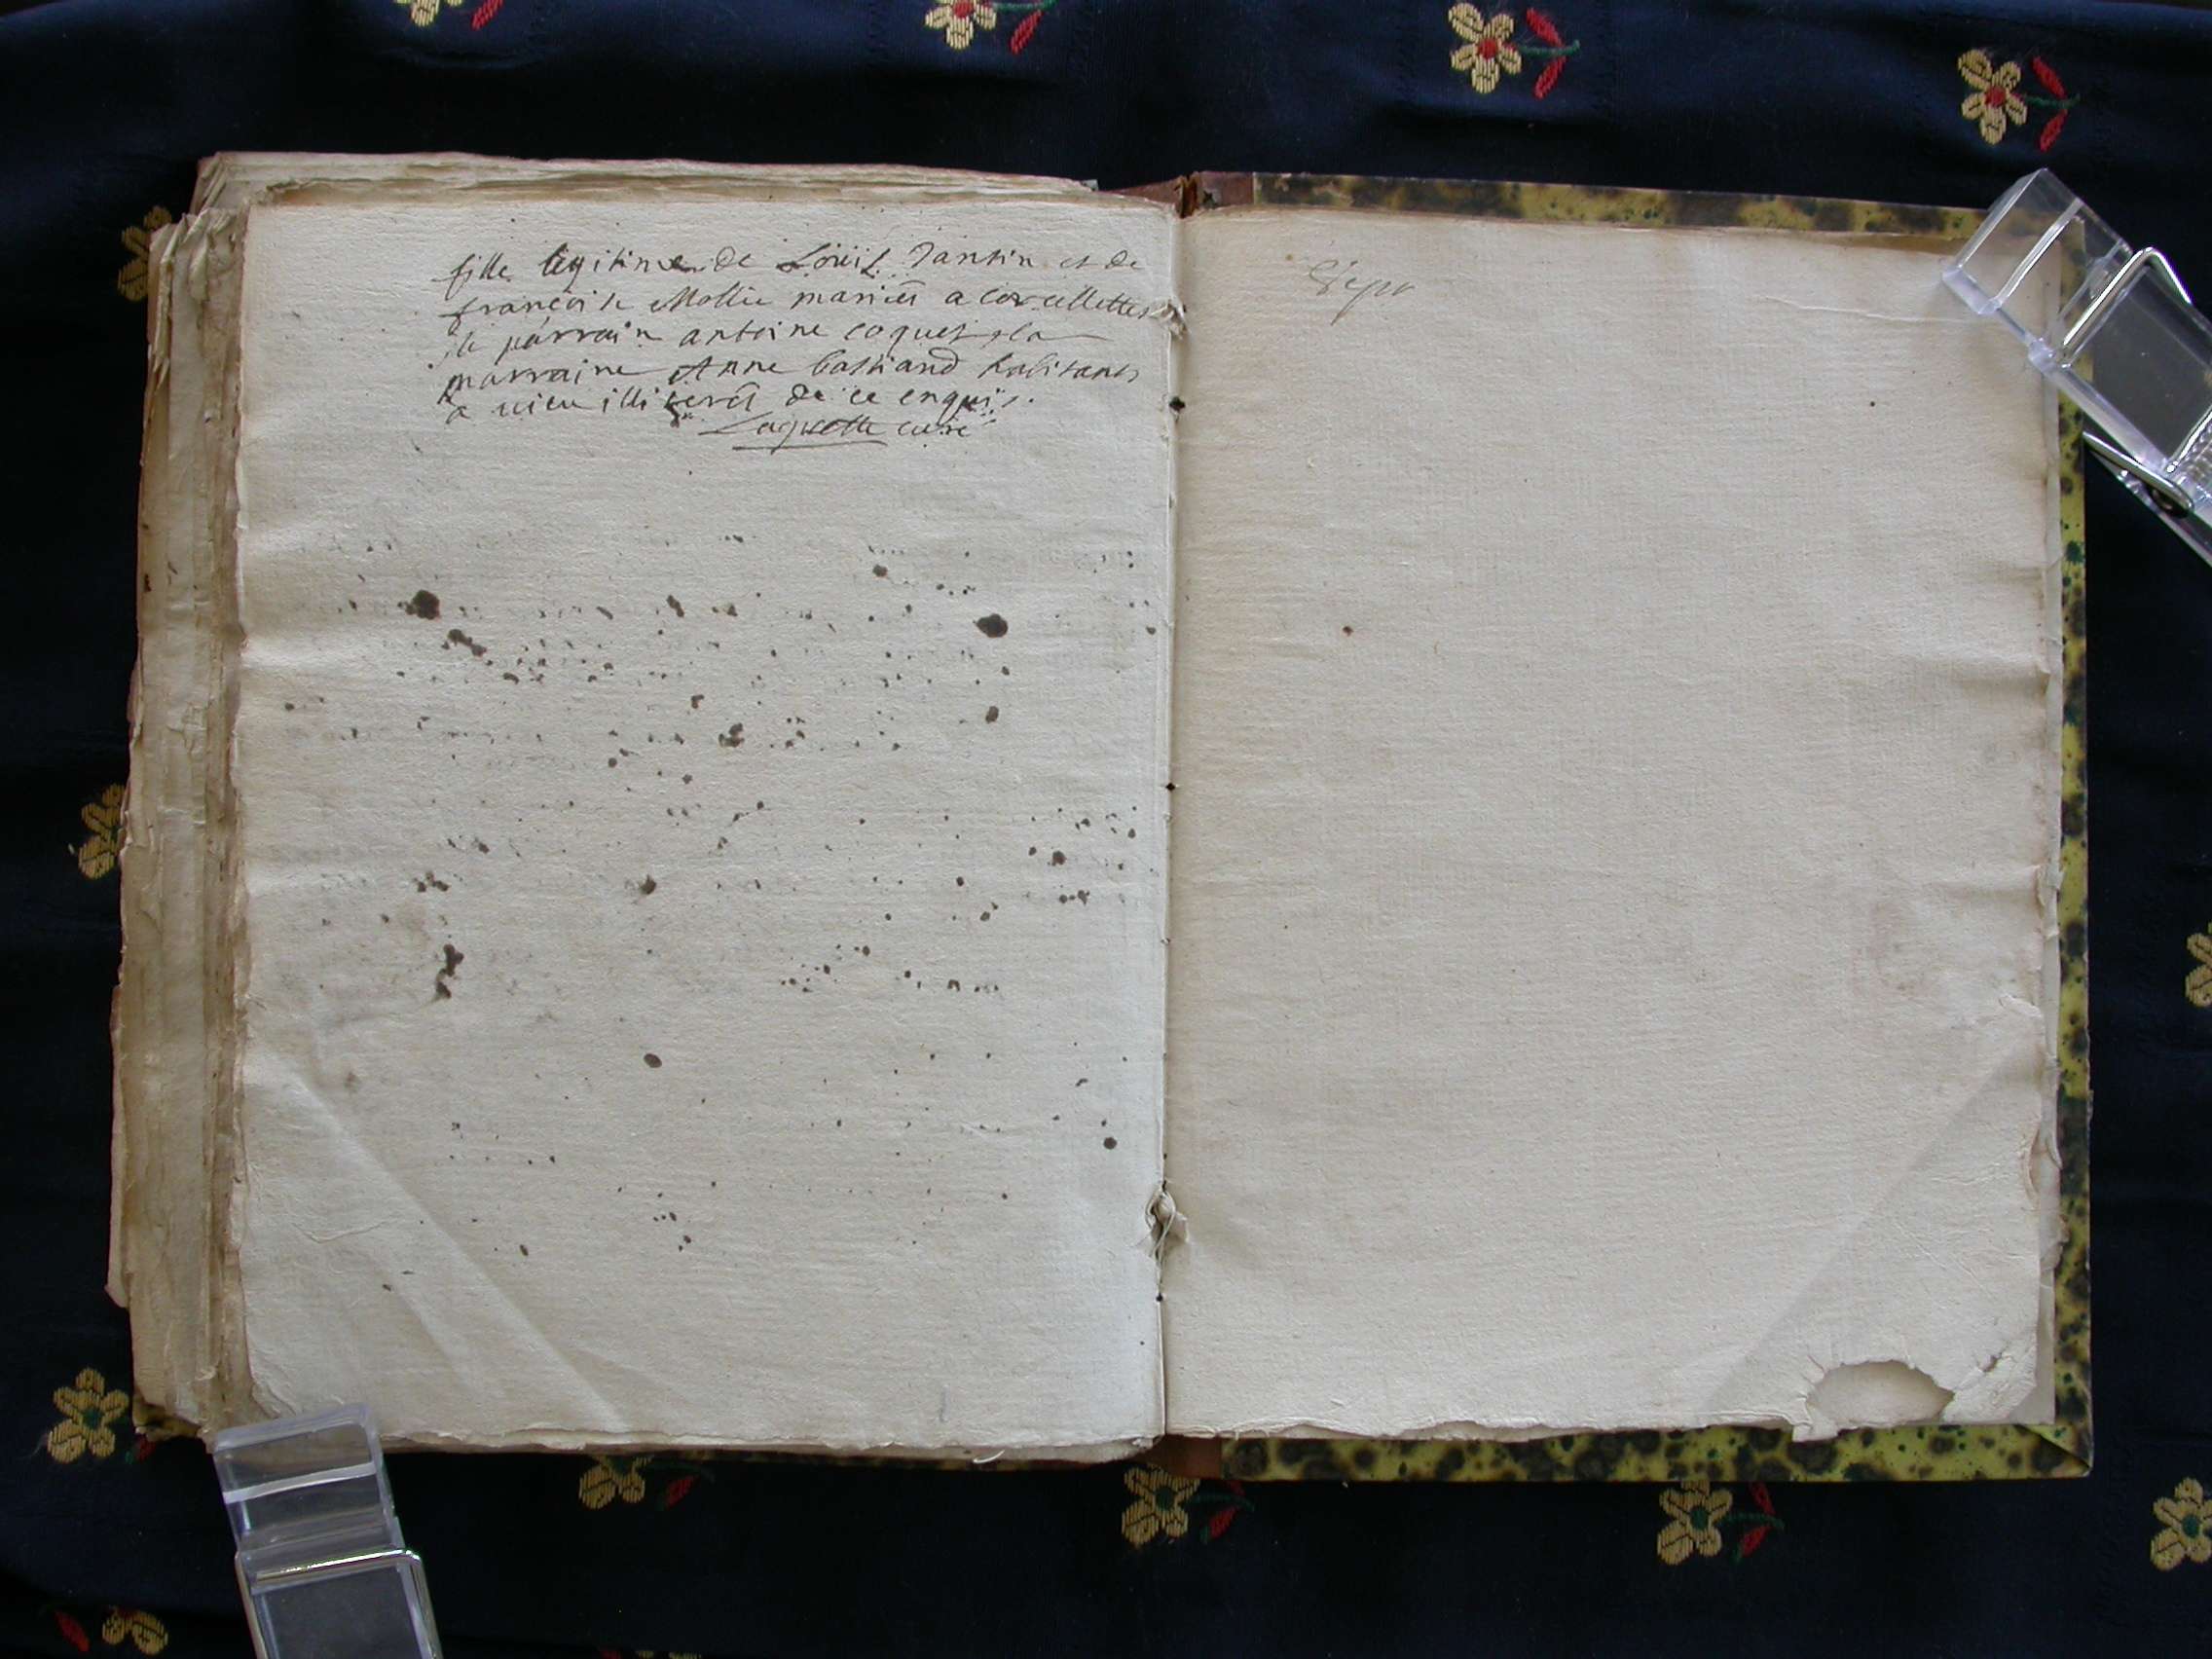 fille legitime de Louis Jantin et de
françoise Mollie mariés a corcellettes
le parrain antoine coquet, la
marraine Anne bastiand habitants
a vieu illiterés de ce enquis.
curé